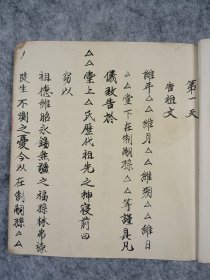 第一天
告祖文
維年△△維月△△維朔△△維日
△△堂下在制嗣孫△△等謹具凡
儀敢告於
△△堂上△氏歷代祖先之神寢前曰
竊以
祖德維昭永錫無疆之福孫枝弗諒
陡生不測之憂今以在制嗣孫△△